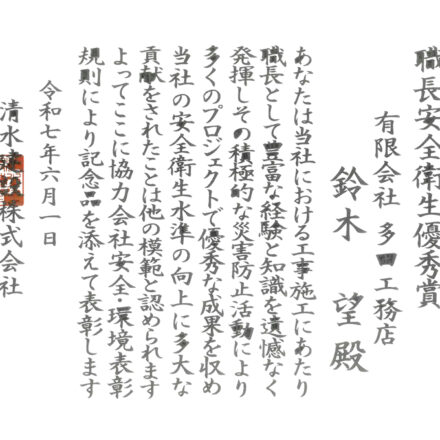 職長安全衛生優秀賞
有限会社 多田工務店
鈴木 望 殿
あなたは当社における工事施工にあたり
職長として豊富な経験と知識を遺憾なく
発揮しその積極的な災害防止活動により
多くのプロジェクトで優秀な成果を収め
当社の安全衛生水準の向上に多大な
貢献をされたことは他の模範と認められます
よってここに協力会社安全・環境表彰
規則により記念品を添えて表彰します
令和七年六月一日
清水建設株式会社